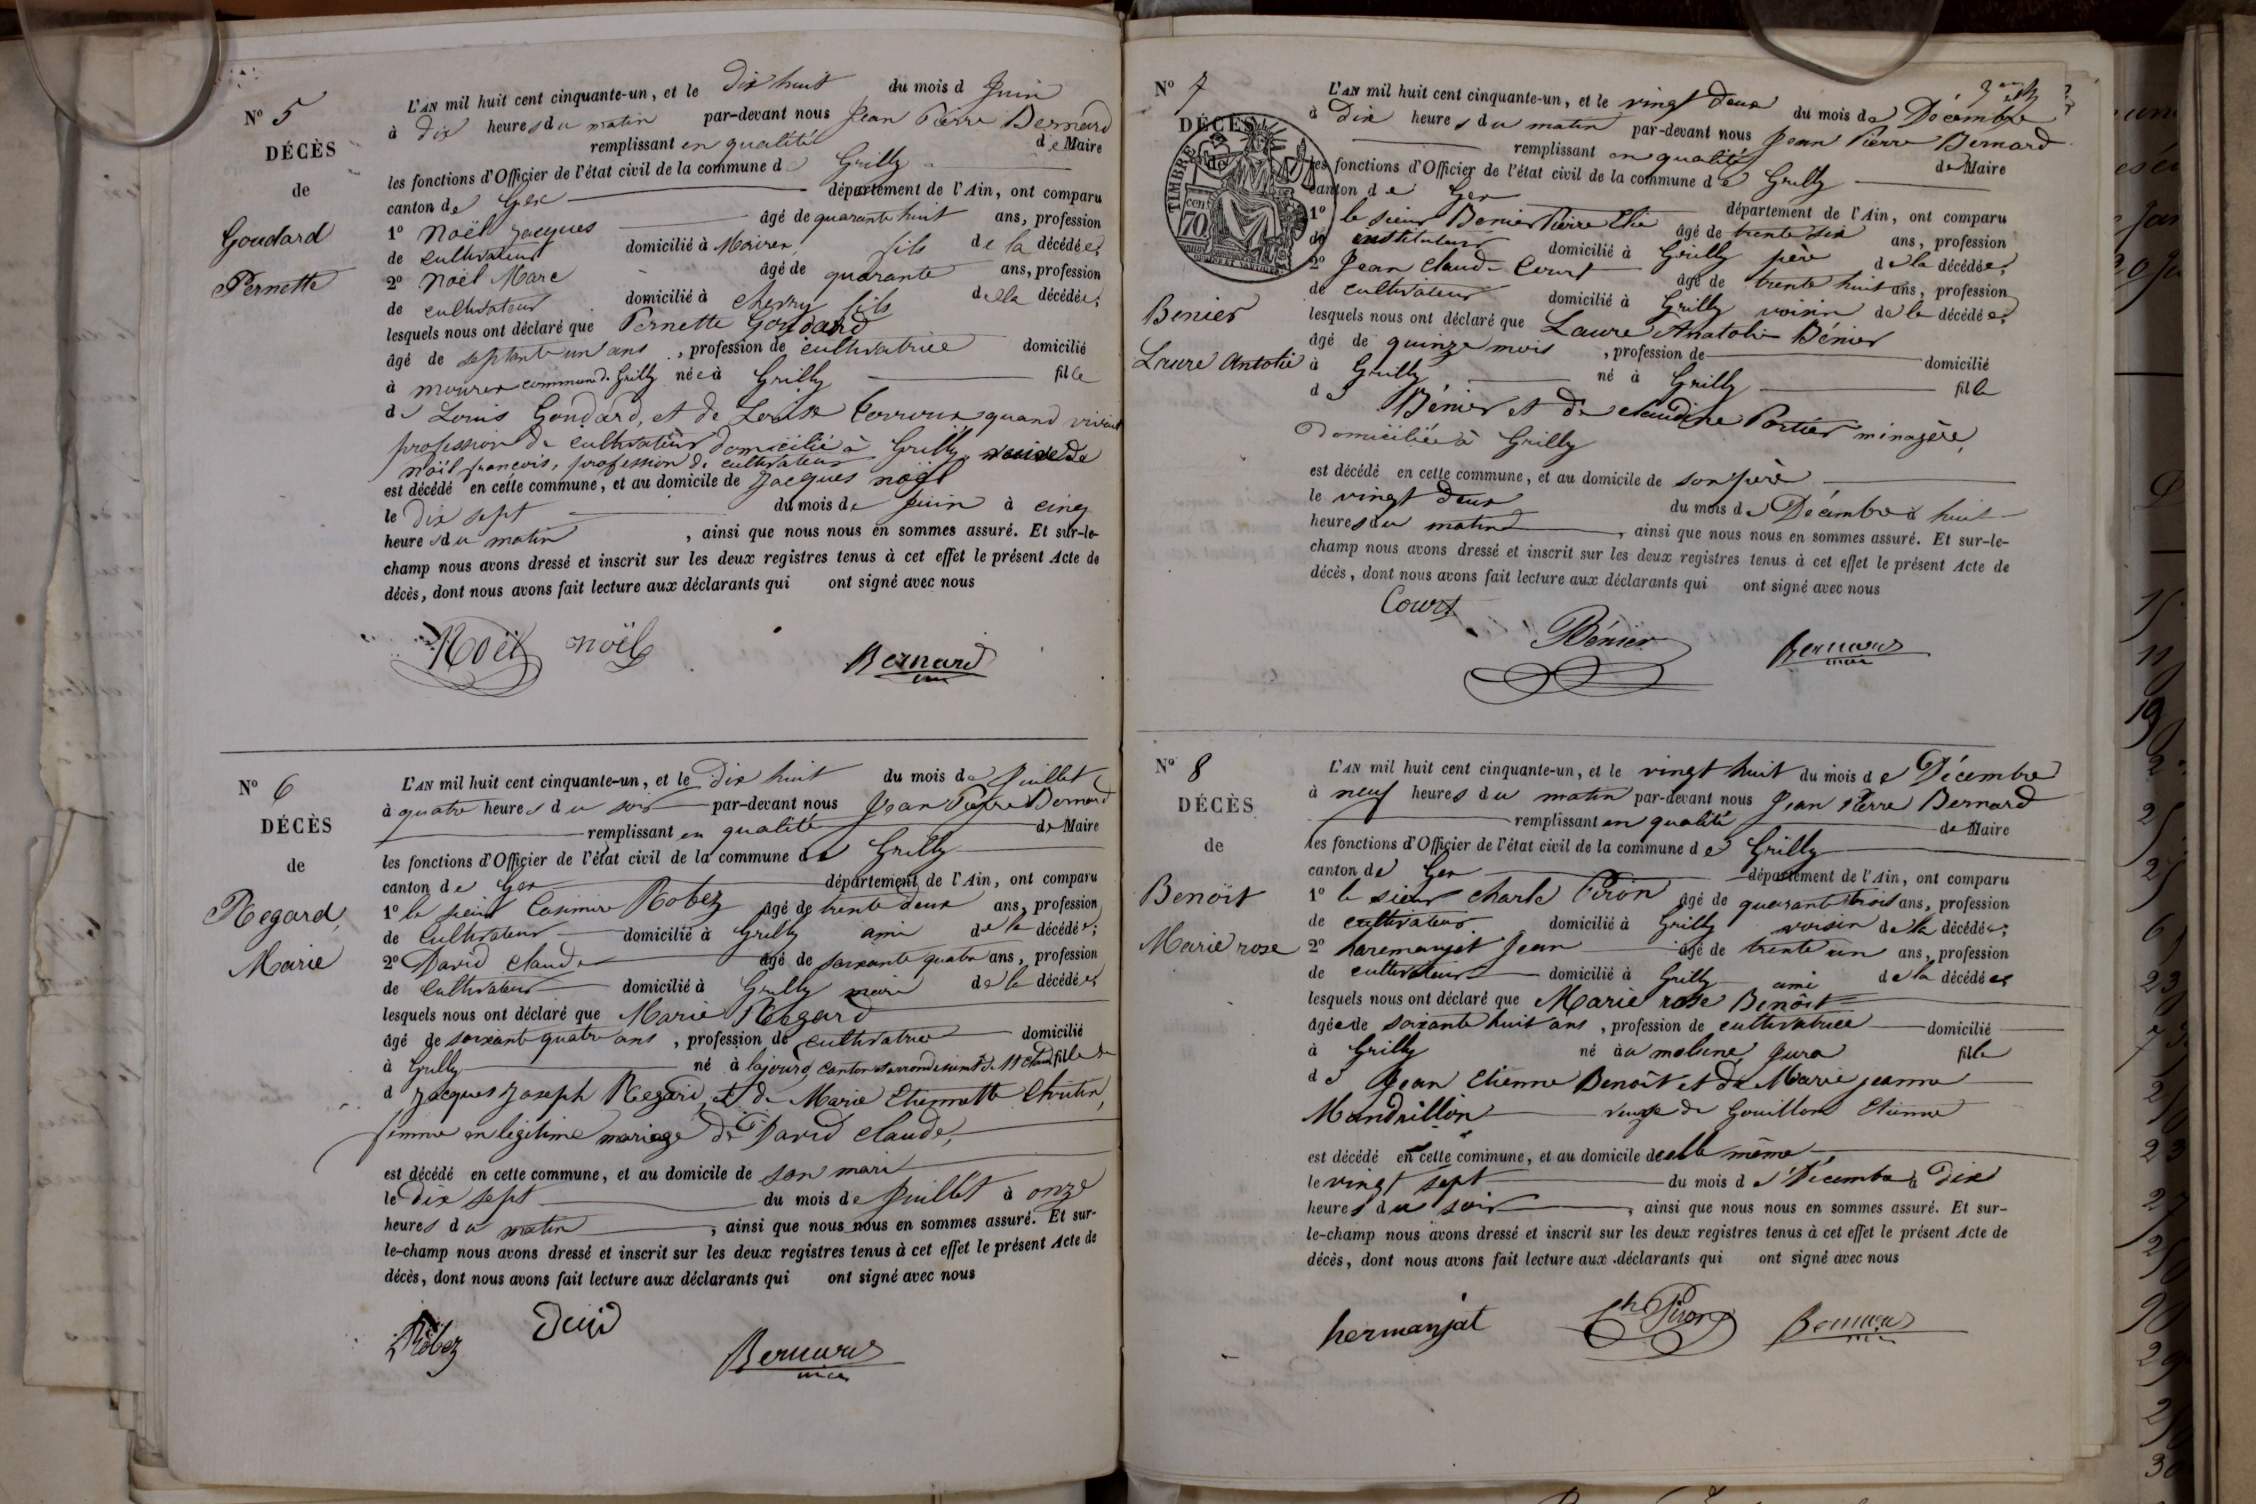 N° 5
DÉCÈS
de
Goudard
Pernette
L'AN mil huit cent cinquante-un, et le dix huit du mois d Juin
à dix heures du matin par-devant nous Jean Pierre Bernard
remplissant en qualité de Maire
les fonctions d'Officier de l'état civil de la commune d Grilly
canton de Gex département de l'Ain, ont comparu
1° Noël Jacques âgé de quarante huit ans, profession
de cultivateur domicilié à Mourex, fils de la décédée;
2° Noël Marc âgé de quarante ans, profession
de cultivateur domicilié à chevry fils de la décédée;
lesquels nous ont déclaré que Pernette Goudard
âgé de septante un ans, profession de cultivatrice domicilié
à mourex commune de Grilly née à Grilly fille
de Louis Goudard, et de Louise quand vivait
profession de cultivateur domicilié à Grilly, veuve de
Noël françois, profession de cultivateur
est décédé en cette commune, et au domicile de Jacques noël
le dix sept du mois de Juin à cinq
heures du matin, ainsi que nous nous en sommes assuré. Et sur-le-
champ nous avons dressé et inscrit sur les deux registres tenus à cet effet le présent Acte de
décès, dont nous avons fait lecture aux déclarants qui ont signé avec nous
Noël noël Bernard
N° 6
DÉCÈS
de
Regard,
Marie
L'AN mil huit cent cinquante-un, et le Dix huit du mois de Juillet
à quatre heures du soir par-devant nous Jean Pierre Bernard
remplissant en qualité de Maire
les fonctions d'Officier de l'état civil de la commune de Grilly
canton de Gex département de l'Ain, ont comparu
1° le sieur Casimir Robez âgé de trente deux ans, profession
de Cultivateur domicilié à Grilly ami de la décédée;
2° David Claude âgé de soixante quatre ans, profession
de Cultivateur domicilié à Grilly mari de la décédée;
lesquels nous ont déclaré que Marie Regard
âgé de soixante quatre ans, profession de cultivatrice domicilié
à Grilly né à lajoux, canton et arrondissement de St Claude fille
d Jacques Joseph Regard, et de Marie Etiennette
femme en légitime mariage de David Claude,
est décédé en cette commune, et au domicile de son mari
le Dix sept du mois de Juillet à onze
heures du matin, ainsi que nous nous en sommes assuré. Et sur-
le-champ nous avons dressé et inscrit sur les deux registres tenus à cet effet le présent Acte de
décès, dont nous avons fait lecture aux déclarants qui ont signé avec nous
Robez David Bernard
N° 7
DÉCÈS
de
TIMBRE
70 cent
Benier
Laure Antolie
L'AN mil huit cent cinquante-un, et le vingt deux du mois de Décembre
à Dix heures du matin par-devant nous Jean Pierre Bernard
remplissant en qualité de Maire
les fonctions d'Officier de l'état civil de la commune de Grilly
canton de Gex département de l'Ain, ont comparu
1° le sieur Benier Pierre Elie âgé de trente six ans, profession
de instituteur domicilié à Grilly père de la décédée;
2° Jean Claude Court âgé de trente huit ans, profession
de cultivateur domicilié à Grilly voisin de la décédée;
lesquels nous ont déclaré que Laure Anatolie Bénier
âgé de quinze mois, profession de domicilié
à Grilly né à Grilly fille
de Bénier et de claudine Portier ménagère,
Domiciliée à Grilly
est décédé en cette commune, et au domicile de son père
le vingt deux du mois de Décembre à huit
heures du matin, ainsi que nous nous en sommes assuré. Et sur-le-
champ nous avons dressé et inscrit sur les deux registres tenus à cet effet le présent Acte de
décès, dont nous avons fait lecture aux déclarants qui ont signé avec nous
Court Bénier Bernard
N° 8
DÉCÈS
de
Benoît
Marie rose
L'AN mil huit cent cinquante-un, et le vingt huit du mois de Décembre
à neuf heures du matin par-devant nous Jean Pierre Bernard
remplissant en qualité de Maire
les fonctions d'Officier de l'état civil de la commune de Grilly
canton de Gex département de l'Ain, ont comparu
1° le sieur Charle Piron âgé de quarante trois ans, profession
de cultivateur domicilié à Grilly voisin de la décédée;
2° haremanjat Jean âgé de trente un ans, profession
de cultivateur domicilié à Grilly ami de la décédée;
lesquels nous ont déclaré que Marie rose Benôit
âgée de soixante huit ans, profession de cultivatrice domicilié
à Grilly né au molune Jura fille
de Jean Etienne Benoît et de Marie jeanne
Mandrillon veuve de Gouillon Etienne
est décédé en cette commune, et au domicile de elle même
le vingt sept du mois de Décembre à Dix
heures du soir, ainsi que nous nous en sommes assuré. Et sur-
le-champ nous avons dressé et inscrit sur les deux registres tenus à cet effet le présent Acte de
décès, dont nous avons fait lecture aux déclarants qui ont signé avec nous
hermanjat Ch Piron Bernard